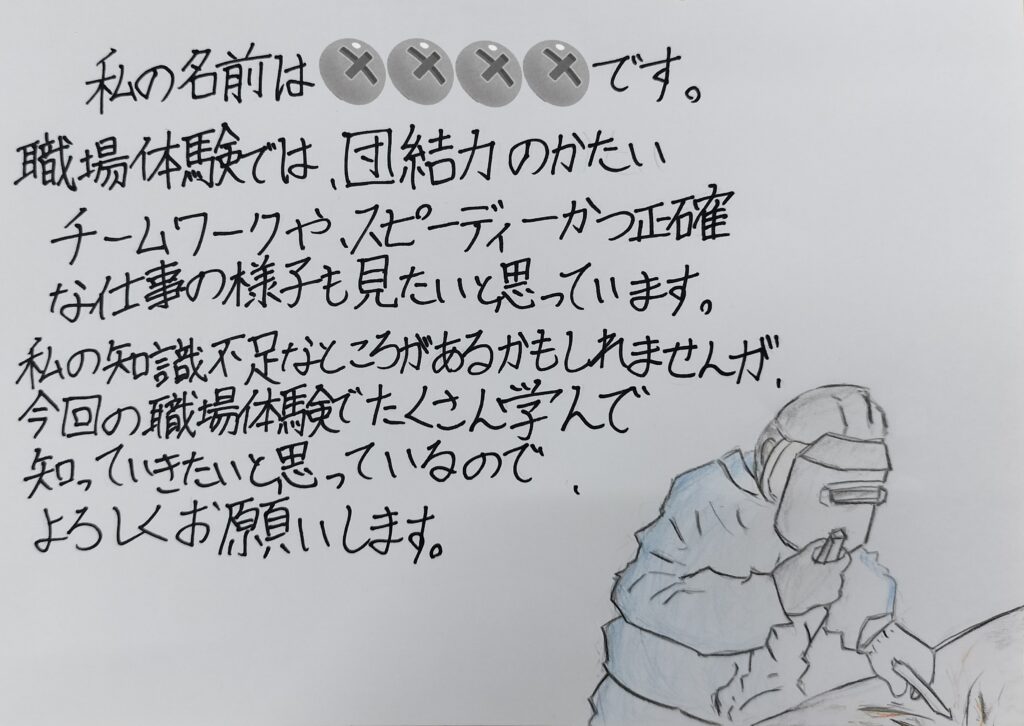 私の名前は××××です。
職場体験では、団結力のかたい
チームワークや、スピーディーかつ正確
な仕事の様子も見たいと思っています。
私の知識不足なところがあるかもしれませんが、
今回の職場体験でたくさん学んで
知っていきたいと思っているので、
よろしくお願いします。